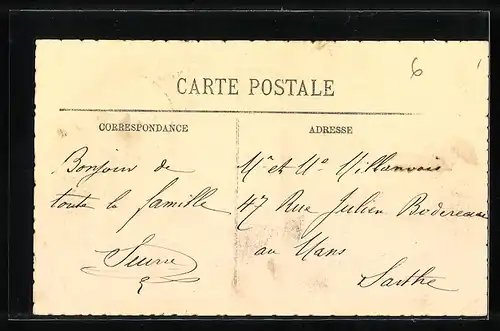 6
CARTE POSTALE
CORRESPONDANCE
Bonjour de
toute la famille
ADRESSE
Mr et Me
47 Rue Julien Bodereau
au Mans
Sarthe